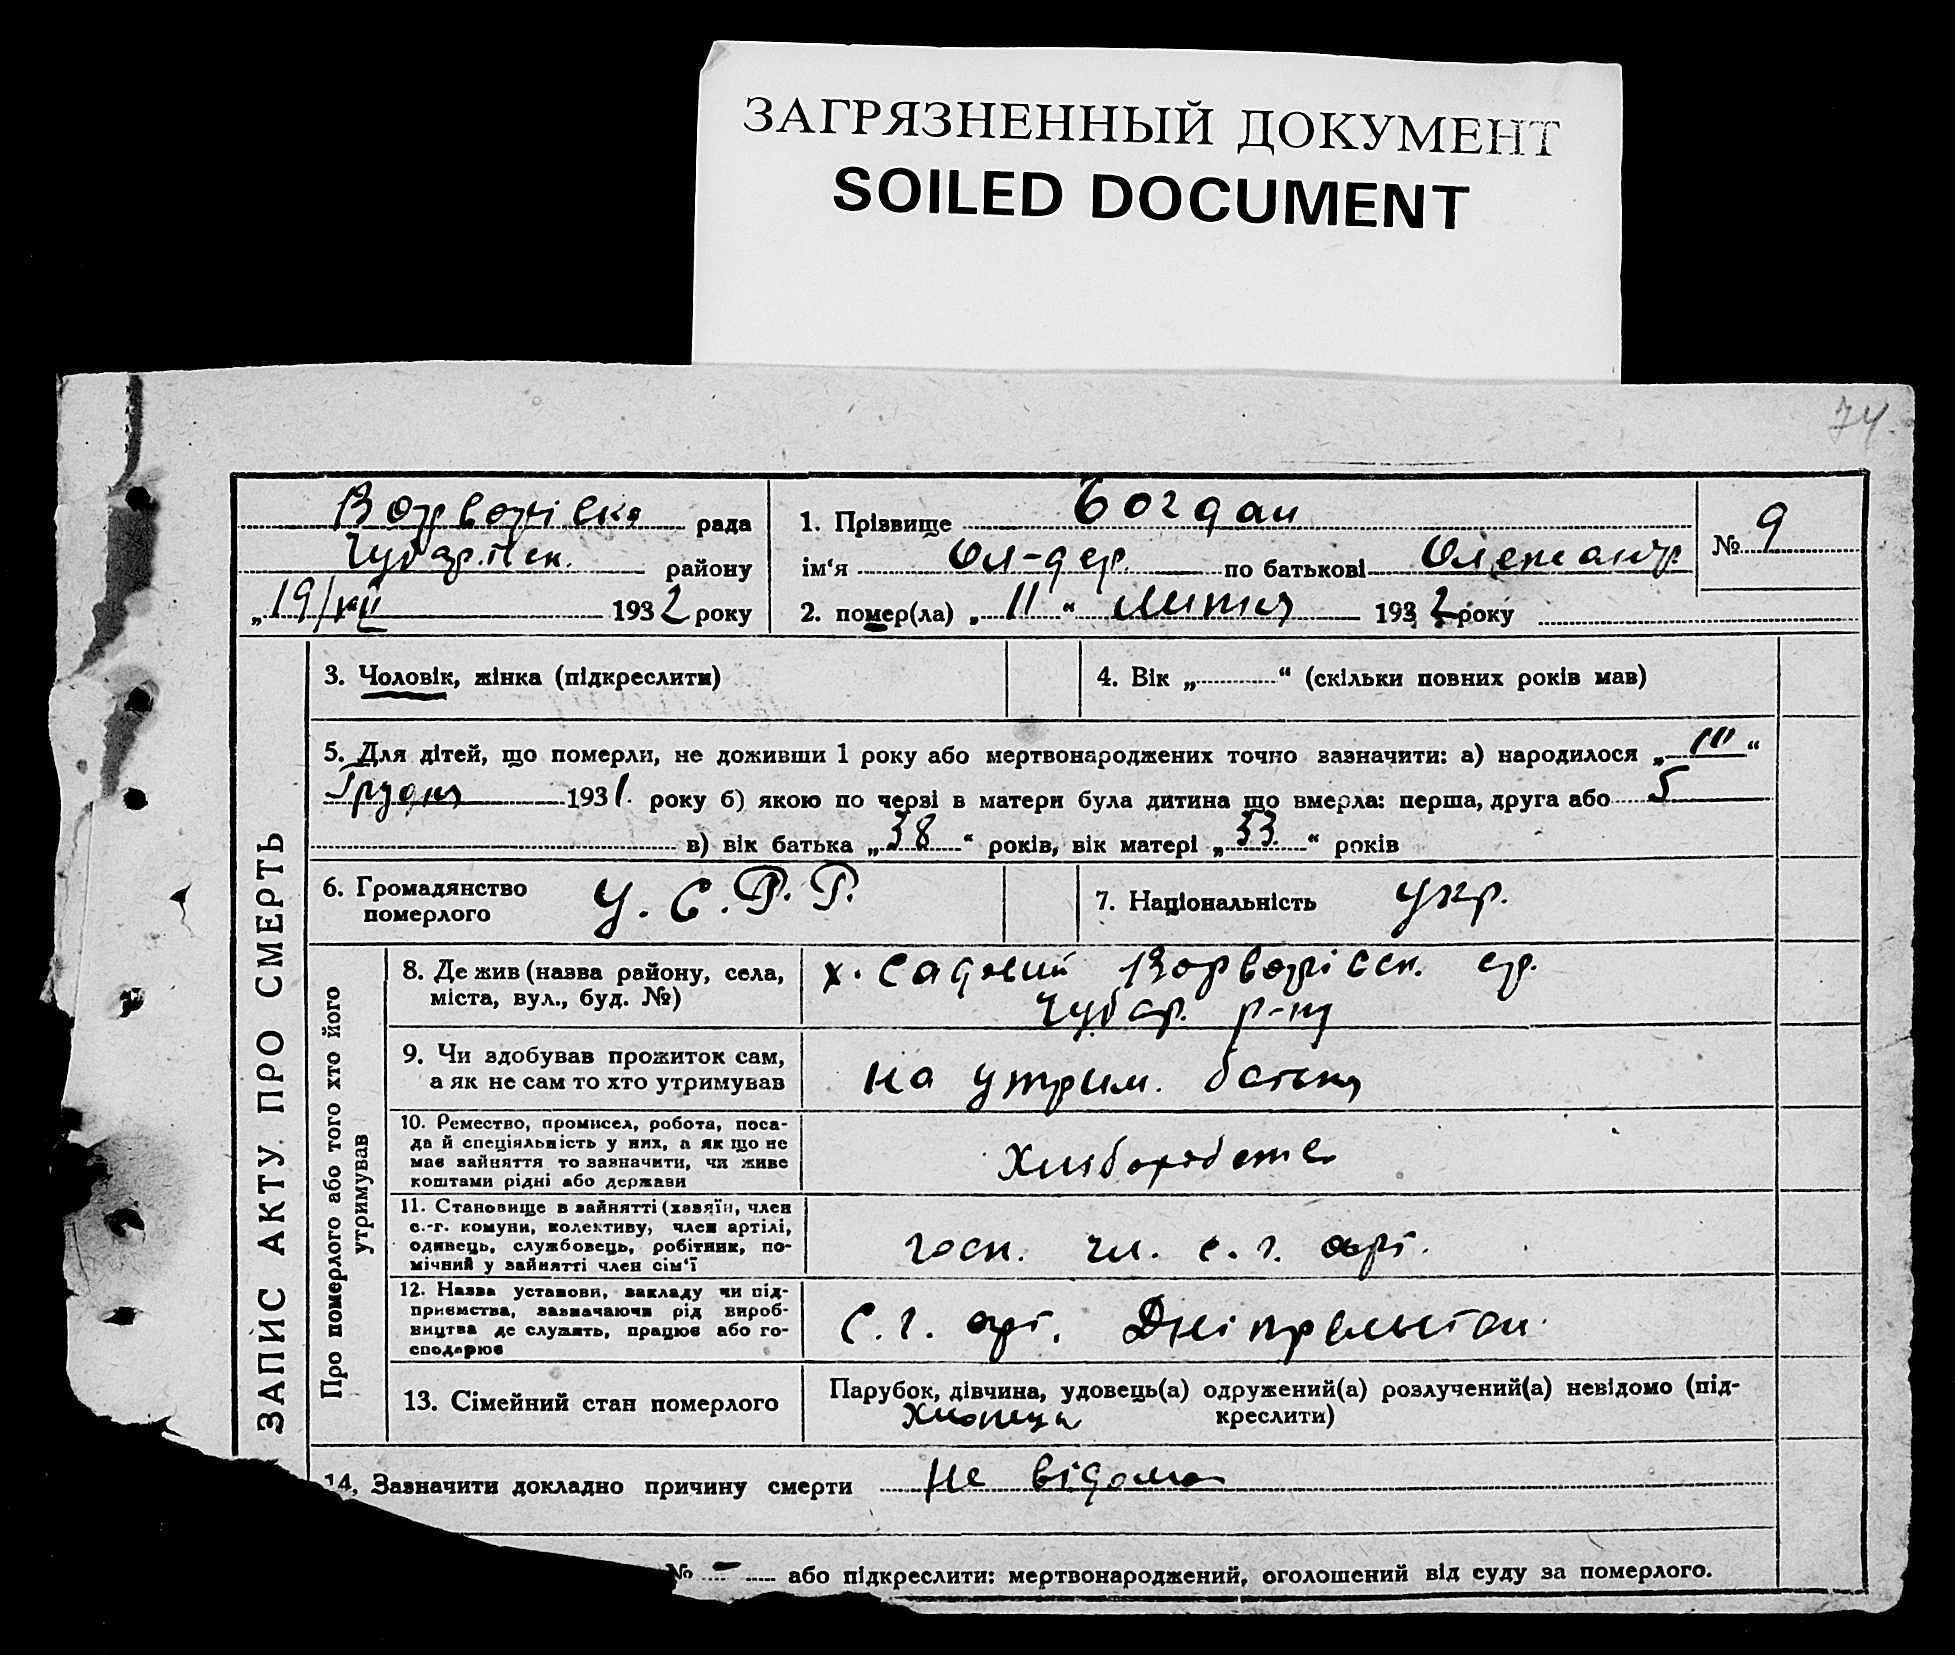 ЗАГРЯЗНЕННЫЙ ДОКУМЕНТ
SOILED DOCUMENT
74.
рада
Чубар.івск. району
„19/VII 1932 року
1. Прізвище Богдан
ім‘я Ол-дер. по батькові Олександр.
2. помер(ла) „11“ липня 1932 року
№ 9
ЗАПИС АКТУ ПРО СМЕРТЬ
3. Чоловік, жінка (підкреслити)
4. Вік „ “ (скільки повних років мав)
5. Для дітей, що померли, не доживши 1 року або мертвонароджених точно зазначити: а) народилося „III“
Грудня 1931. року б) якою по черзі в матери була дитина що вмерла: перша, друга або 5
в) вік батька „38“ років, вік матері „33“ років
6. Громадянство
померлого
У. С. Р. Р.
7. Національність укр.
Про померлого або того хто його
утримував
8. Де жив (назва району, села,
міста, вул., буд. №)
х. Садовий Ворварівск. ср.
Чубар. р-ну
9. Чи здобував прожиток сам,
а як не сам то хто утримував
на утрим. батька
10. Ремество, промисел, робота, поса-
да й спеціяльність у них, а як що не
має зайняття то зазначити, чи живе
коштами рідні або держави
Хліборобств
11. Становище в зайнятті (хазяїн, член
с.-г. комуни, колективу, член артілі,
одинець, службовець, робітник, по-
мічний у зайнятті член сім‘ї
госп. чл. с. г. арт.
12. Назва установи, закладу чи під-
приємства, зазначаючи рід вироб-
ництва де служить, працює або го-
сподарює
С. г. арт.
13. Сімейний стан померлого
Парубок, дівчина, удовець(а) одружений(а) розлучений(а) невідомо (під-
креслити)
Хлопець
14. Зазначити докладно причину смерти Не відома
№ - або підкреслити: мертвонароджений, оголошений від суду за померлого.